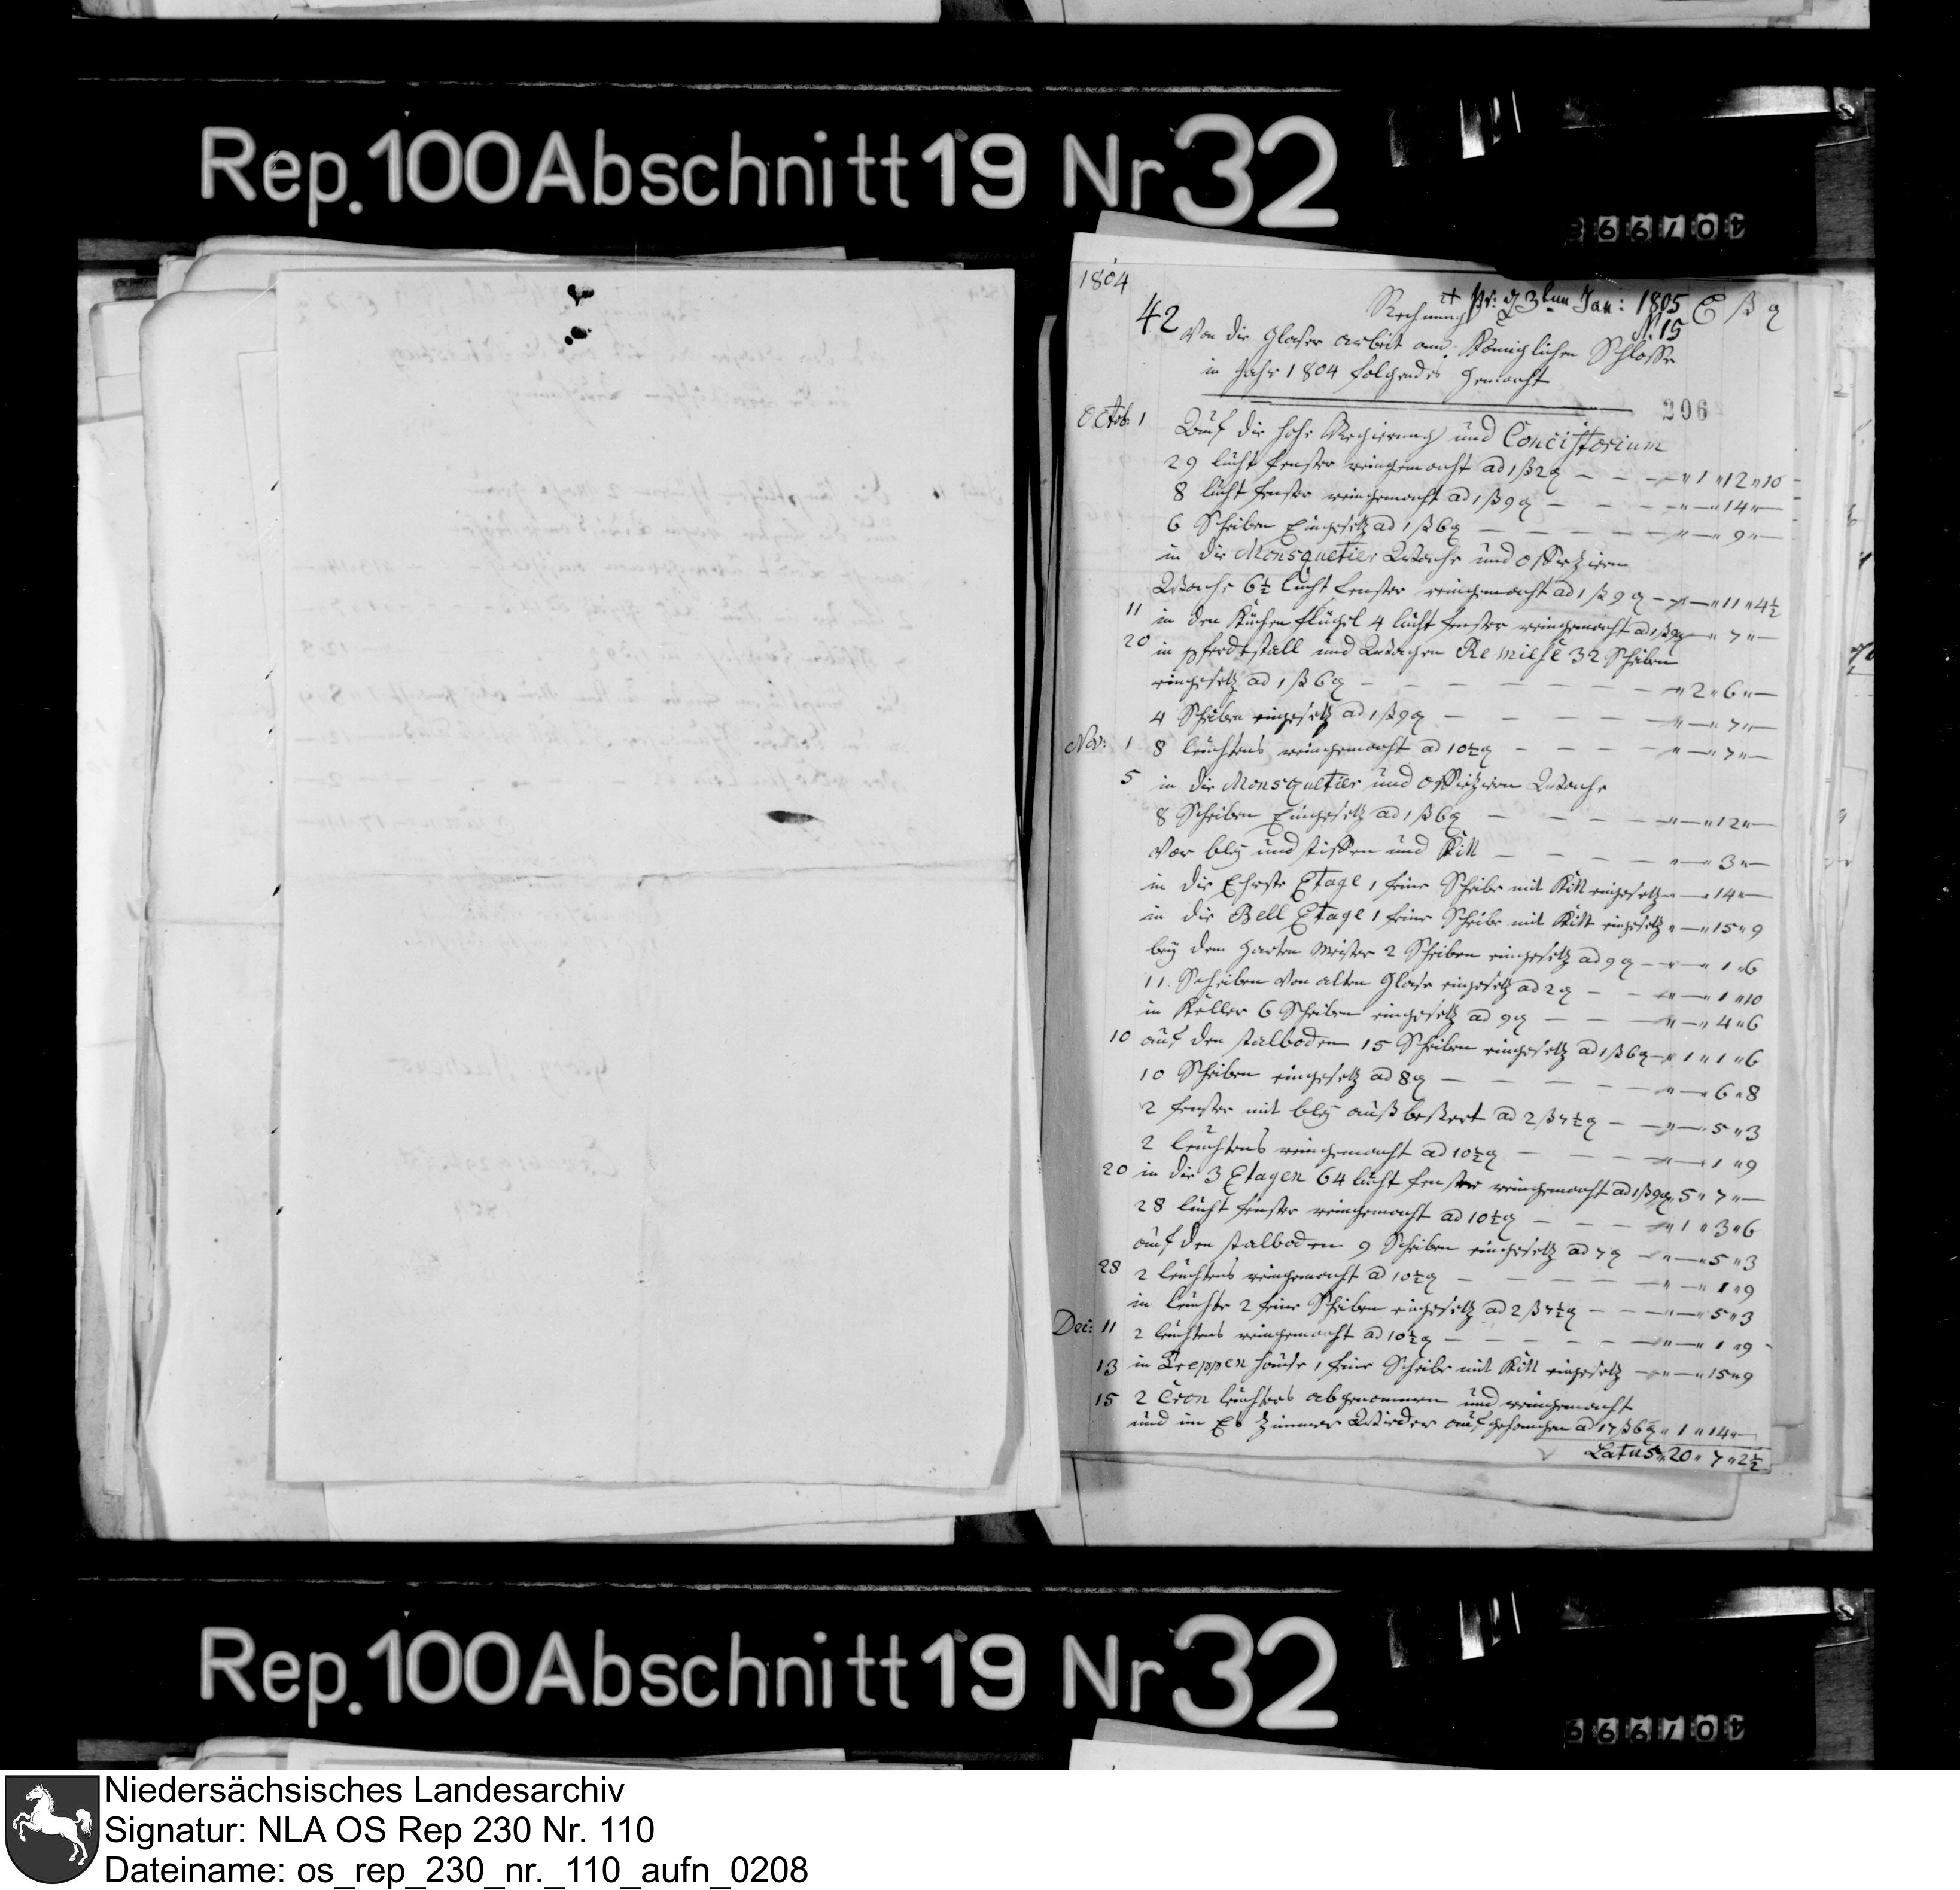 Rep. 100 Abschnitt 19 Nr 32
1804
pr: d 3ten Jan: 1805
42 Rechnung N 15 ß ₰
Von die Glaser arbeit am Königlichen Schlosse
in Jahr 1804 folgendes gemacht
206
Octob: 1 Auf die hohe Regierung und Concistorium
29 lucht fenster reingemacht ad 1 ß 2 ₰ — — — " 1 " 12 " 10
8 lucht fenster reingemacht ad 1 ß 9 ₰ — — — " — " 14 " —
6 Scheiben Eingesetz ad 1 ß 6 ₰ — — — " — " 9 " —
in die Monsquetier Wache und offitziren
Wache 6½ lucht fenster reingemacht ad 1 ß 9 ₰ — " — " 11 " 4½
11 in den Küchen flügel 4 lucht fenster reingemacht ad 1 ß 9 ₰ — " 7 " —
20 in pferdestall und Wagen Remiese 32 Scheiben
eingesetz ad 1 ß 6 ₰ — — — " 2 " 6 " —
4 Scheiben eingesetz ad 1 ß 9 ₰ — — — " — " 7 " —
Nov: 1 8 leuchtens reingemacht ad 10½ ₰ — — — " — " 7 " —
5 in die Monsquetier und offitziren Wache
8 Scheiben Eingesetz ad 1 ß 6 ₰ — — — " — " 12 " —
Vor bley und stiften und Kitt — — — " — " 3 " —
in die Ehrste Etage 1 feine Scheibe mit Kitt eingesetz " — " 14 " —
in die Bell Etage 1 feine Scheibe mit Kitt eingesetz " — " 15 " 9
bey dem Garten Meister 2 Scheiben eingesetz ad 9 ₰ — " — " 1 " 6
11 Scheiben Von alten Glase eingesetz ad 2 ₰ — — " — " 1 " 10
in Keller 6 Scheiben eingesetz ad 9 ₰ — — — " — " 4 " 6
10 auf den stalboden 15 Scheiben eingesetz ad 1 ß 6 ₰ — " 1 " 1 " 6
10 Scheiben eingesetz ad 8 ₰ — — — " — " 6 " 8
2 fenster mit bley außbeßert ad 2 ß 7½ ₰ — — " — " 5 " 3
2 leuchtens reingemacht ad 10½ ₰ — — — " — " 1 " 9
20 in die 3 Etagen 64 lucht fenster reingemacht ad 1 ß 9 ₰ " 5 " 7 " —
28 lucht fenster reingemacht ad 10½ ₰ — — — " 1 " 3 " 6
auf den stalboden 9 Scheiben eingesetz ad 7 ₰ — " — " 5 " 3
28 2 leuchtens reingemacht ad 10½ ₰ — — — " — " 1 " 9
in leuchte 2 feine Scheiben eingesetz ad 2 ß 7½ ₰ — — " — " 5 " 3
Dec: 11 2 leuchtens reingemacht ad 10½ ₰ — — — " — " 1 " 9
13 in Treppen hause 1 feine Scheibe mit Kitt eingesetz — " — " 15 " 9
15 2 Cron leuchters abgenommen und reingemacht
und im Es Zimmer Wieder auf gehangen ad 17 ß 6 ₰ " 1 " 14 " —
Latus " 20 " 7 " 2½
Rep. 100 Abschnitt 19 Nr 32
Niedersächsisches Landesarchiv
Signatur: NLA OS Rep 230 Nr. 110
Dateiname: os_rep_230_nr._110_aufn_0208